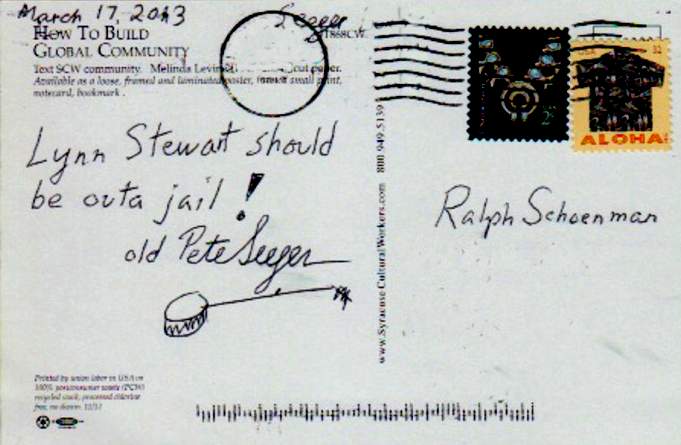 March 17, 2013
Seeger
HOW TO BUILD
GLOBAL COMMUNITY
1868CW
Text SCW community. Melinda Levin cut paper.
Available as a loose, framed and laminated poster, small print,
notecard, bookmark.
Lynn Stewart should
be outa jail!
old Pete Seeger
www.SyracuseCulturalWorkers.com 800.949.5139
USA
ALOHA!
Ralph Schoenman
Printed by union labor in USA on
100% postconsumer waste (PCW)
recycled stock, processed chlorine
free, no dioxin. 12/12